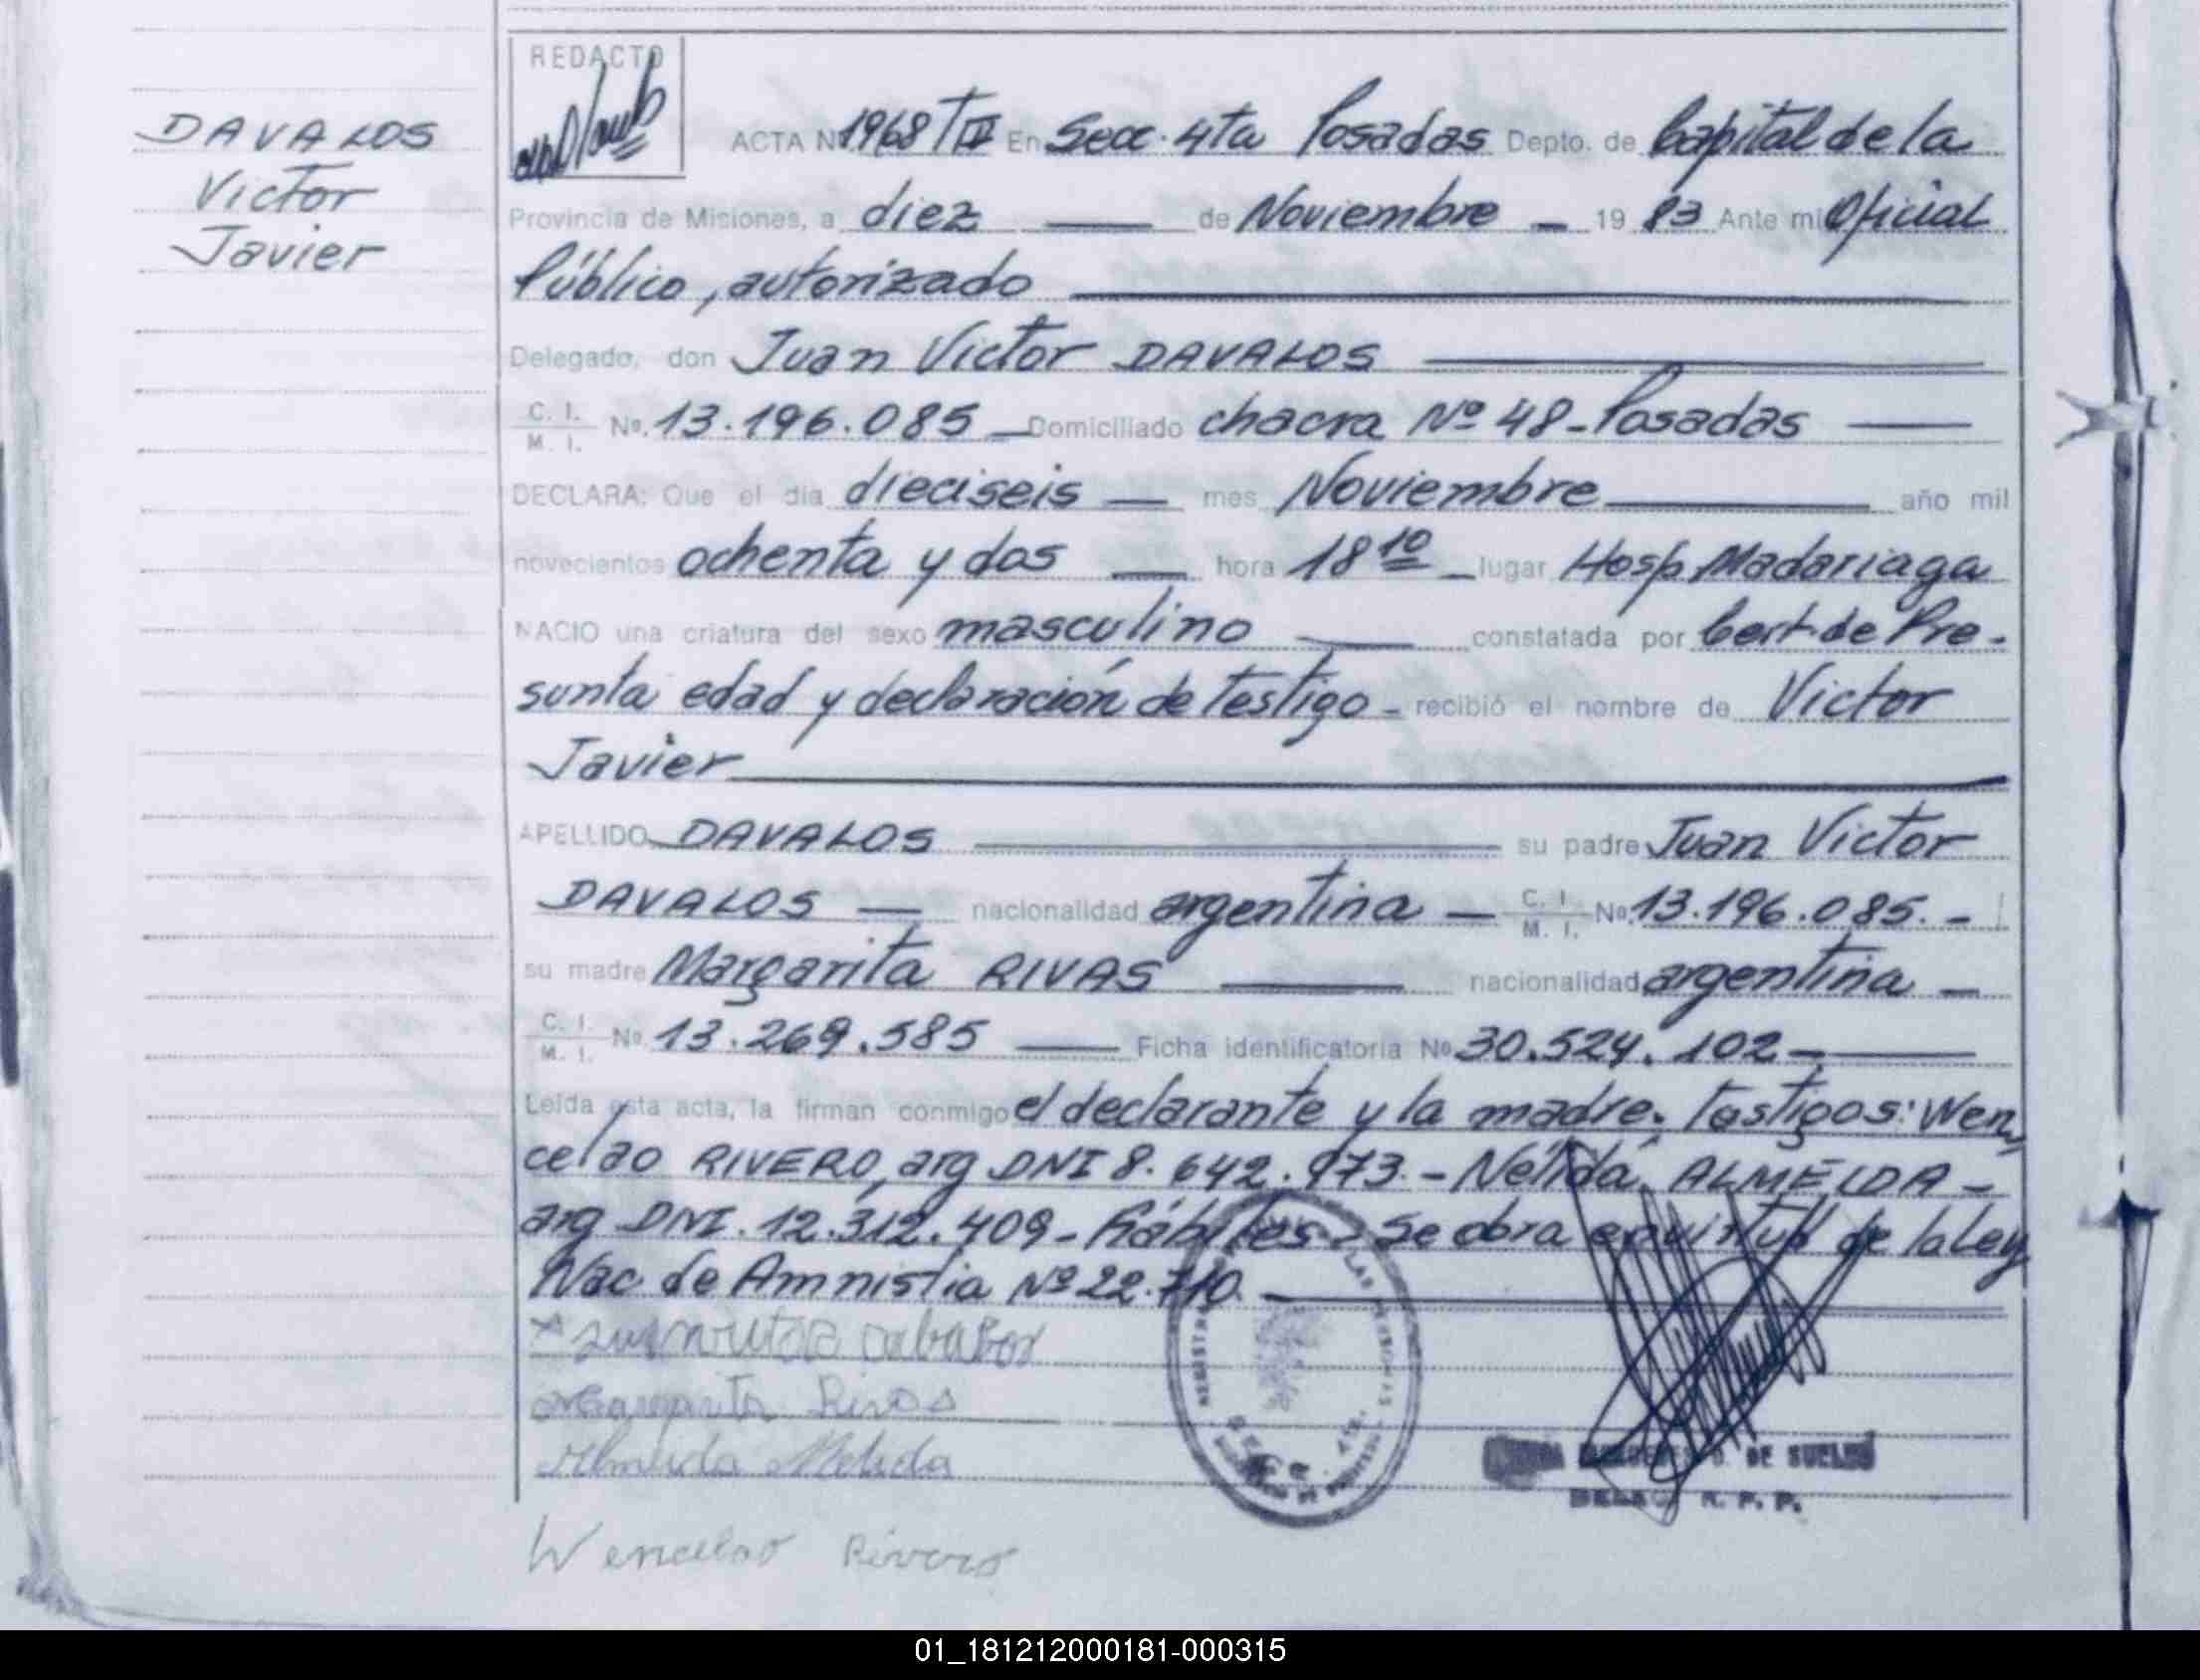 DAVALOS
Victor
Javier
REDACTO
ACTA Nº 1968 TIV En Secc. 4ta Posadas Depto. de Capital de la
Provincia de Misiones, a diez de Noviembre 1983 Ante mi Oficial
Público, autorizado
Delegado, don Juan Victor DAVALOS
C. I. / M. I. Nº. 13.196.085 Domiciliado chacra Nº 48 - Posadas
DECLARA: Que el día dieciseis mes Noviembre año mil
novecientos ochenta y dos hora 18 10 lugar Hosp. Madariaga
NACIO una criatura del sexo masculino constatada por Cert. de Pre-
sunta edad y declaración de testigo - recibió el nombre de Victor
Javier
APELLIDO DAVALOS su padre Juan Victor
DAVALOS nacionalidad argentina C. I. / M. I. Nº. 13.196.085. -
su madre Margarita RIVAS nacionalidad argentina
C. I. / M. I. Nº 13.269.585 Ficha identificatoria Nº 30.524.102 -
Leída esta acta, la firman conmigo el declarante y la madre. Testigos: Wen
celao RIVERO, arg DNI 8.642.973. - Nélida ALMEIDA -
arg DNI. 12.312.409 - Hábiles - Se obra en virtud de la Ley
Nac. de Amnistia Nº 22.710.
Margarita Rivas
Almeida Nelida
DE SUELDO
R. P. P.
Wencelao Rivero
01_181212000181-000315